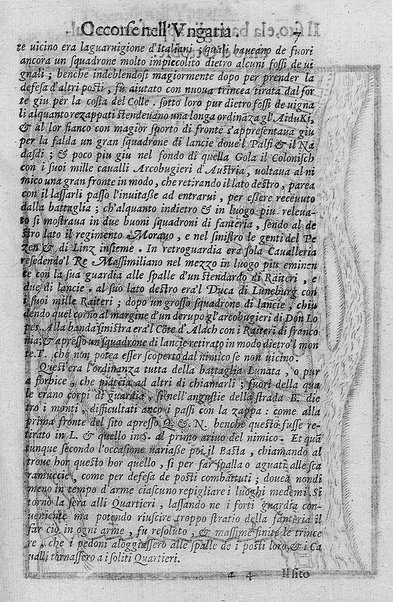 Occorse nell'Vngaria. 7
te uicino era laguarnigione d'Italiani; quali haueano de fuori
ancora un squadrone molto impiccolito dietro alcuni fossi de ui
gnali; benche indeblendosi magiormente dopo per prender la
defesa d'altri posti, fu aiutato con nuoua trincea tirata dal for
te giu per la costa del Colle. sotto loro pur dietro fossi de uigna
li alquanto rezappati stendeuano una longa ordināza gl'Aiduki,
& al lor fianco con magior sporto di fronte s'appresentaua giu
per la falda un gran squadrone di lancie doue'l Palfi & il Na
dasdi; & poco piu nel fondo di quella Gola il Colonisch
con i suoi mille caualli Arcobugieri d'Austria, uoltaua al ni
mico una gran fronte in modo, che retirando il lato destro, parea
con il lassarli passo l'inuitasse ad entrarui, per essere receuuto
dalla battaglia; ch'alquanto indietro & in luogo piu releua-
to si mostraua in due buoni squadroni di fanteria, sendo al de
stro lato il regimento Morauo, e nel sinistro de genti del Pe
zen & di Linz insieme. In retroguardia era sola Caualleria
resedendo'l Re Massimiliano nel mezzo in luogo piu eminen
te con la sua guardia alle spalle d'un stendardo di Raiteri, e
due di lancie. al suo lato destro era'l Duca di Luneburg con
i suoi mille Raiteri; dopo un grosso squadrone di lancie, chiu
dendo quel corno al margine d'un derupo gl'arcobugieri di Don Lo
pes. Alla banda sinistra era'l Cōte d'Alach con i Raiteri di franco
nia; & apresso un squadrone di lancie retirato in modo dietro'l mon
te.T. che non potea esser scoperto dal nimico se non uicino.
Quest'era l'ordinanza tutta della battaglia Lunata, o pur
a forbice, che piaccia ad altri di chiamarli; fuori della qua
le erano corpi di guardia, si nell'angustie della strada B. die
tro i monti, difficultati ancor i passi con la zappa: come alla
prima fronte del sito apresso Q. & N. benche questo fusse re-
tirato in L. & quello in S. al primo arriuo del nimico. Et quā
tunque secondo l'occasione uariasse poi il Basta, chiamando al
troue hor questo hor quello, si per far spalla o aguati alle sca
ramuccie, come per defesa de posti combattuti; douea nondi
meno in tempo d'arme ciascuno repigliare i luoghi medemi. Si
torno la sera alli Quartieri, lassando ne i forti guardia con-
ueniente ma potendo riuscire troppo stratio della fanteria il
far ciò in ogni arme, fu resoluto, & massime finite le trince
re, che i pedoni aloggiassero alle spalle de i posti loro, & i Ca
ualli tornassero a i soliti Quartieri.
a 4 Il sito